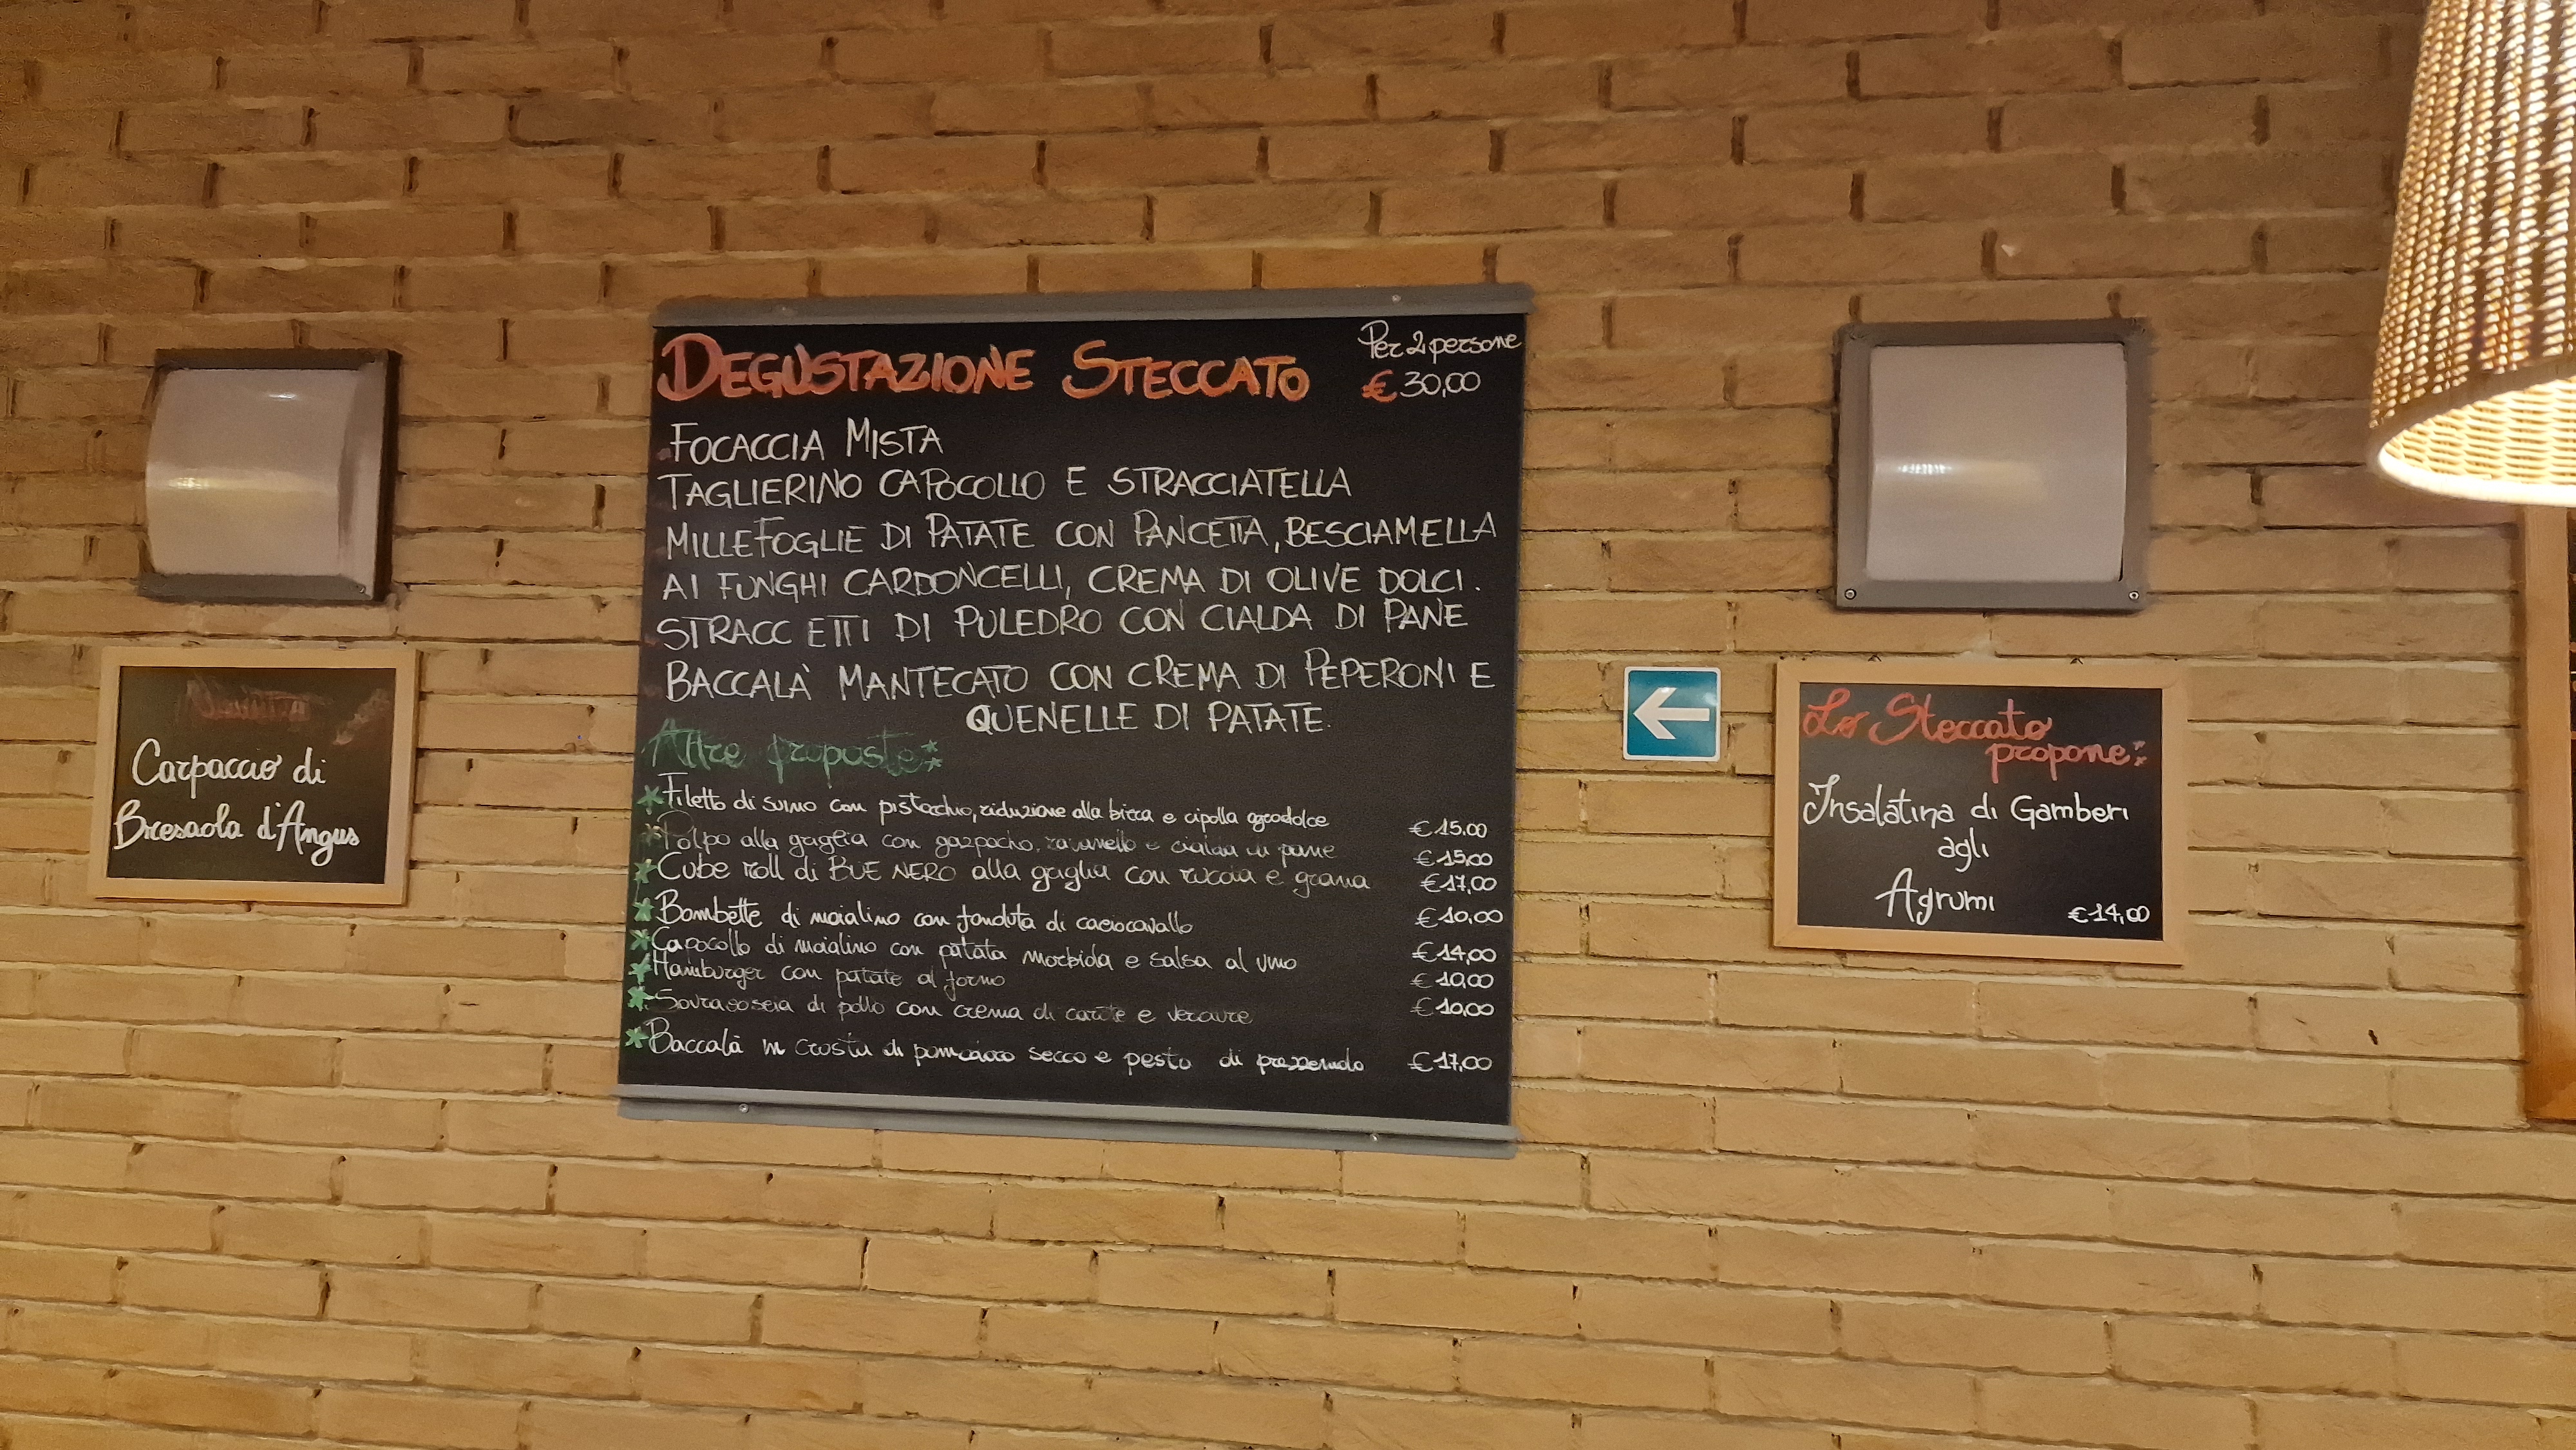 DEGUSTAZIONE STECCATO
Per 2 persone
€ 30,00
FOCACCIA MISTA
TAGLIERINO CAPOCOLLO E STRACCIATELLA
MILLEFOGLIE DI PATATE CON PANCETTA, BESCIAMELLA
AI FUNGHI CARDONCELLI, CREMA DI OLIVE DOLCI.
STRACCETTI DI PULEDRO CON CIALDA DI PANE
BACCALÀ MANTECATO CON CREMA DI PEPERONI E
QUENELLE DI PATATE.
Altre proposte:
Filetto di suino con pistacchio, riduzione alla birra e cipolla agrodolce € 15.00
Polpo alla griglia con gazpacho, ravanello e cialda di pane € 15,00
Cube roll di BUE NERO alla griglia con rucola e grana € 17,00
Bombette di maialino con fonduta di caciocavallo € 10,00
Capocollo di maialino con patata morbida e salsa al vino € 14,00
Hamburger con patate al forno € 10,00
di pollo con crema di carote e verdure € 10,00
Baccalà in crosta di pomodoro secco e pesto di prezzemolo € 17,00
Carpaccio di
Bresaola d'Angus
Lo Steccato
propone:
Insalatina di Gamberi
agli
Agrumi
€ 14,00